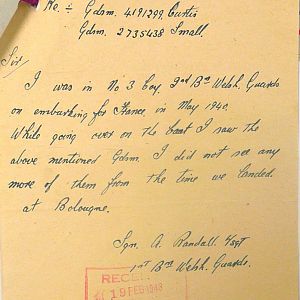 Re:- Gdsm. 4191299. Curtis
Gdsm. 2735438 Small.
Sir,
I was in No 3 Coy 2nd Bn Welsh. Guards
on embarking for France, in May 1940.
While going over on the boat I saw the
above mentioned Gdsm. I did not see any
more of them from the time we landed
at Bolougne.
Sgn. A. Randall. L/Sgt
1st Bn Welsh. Guards.
19 FEB 1943